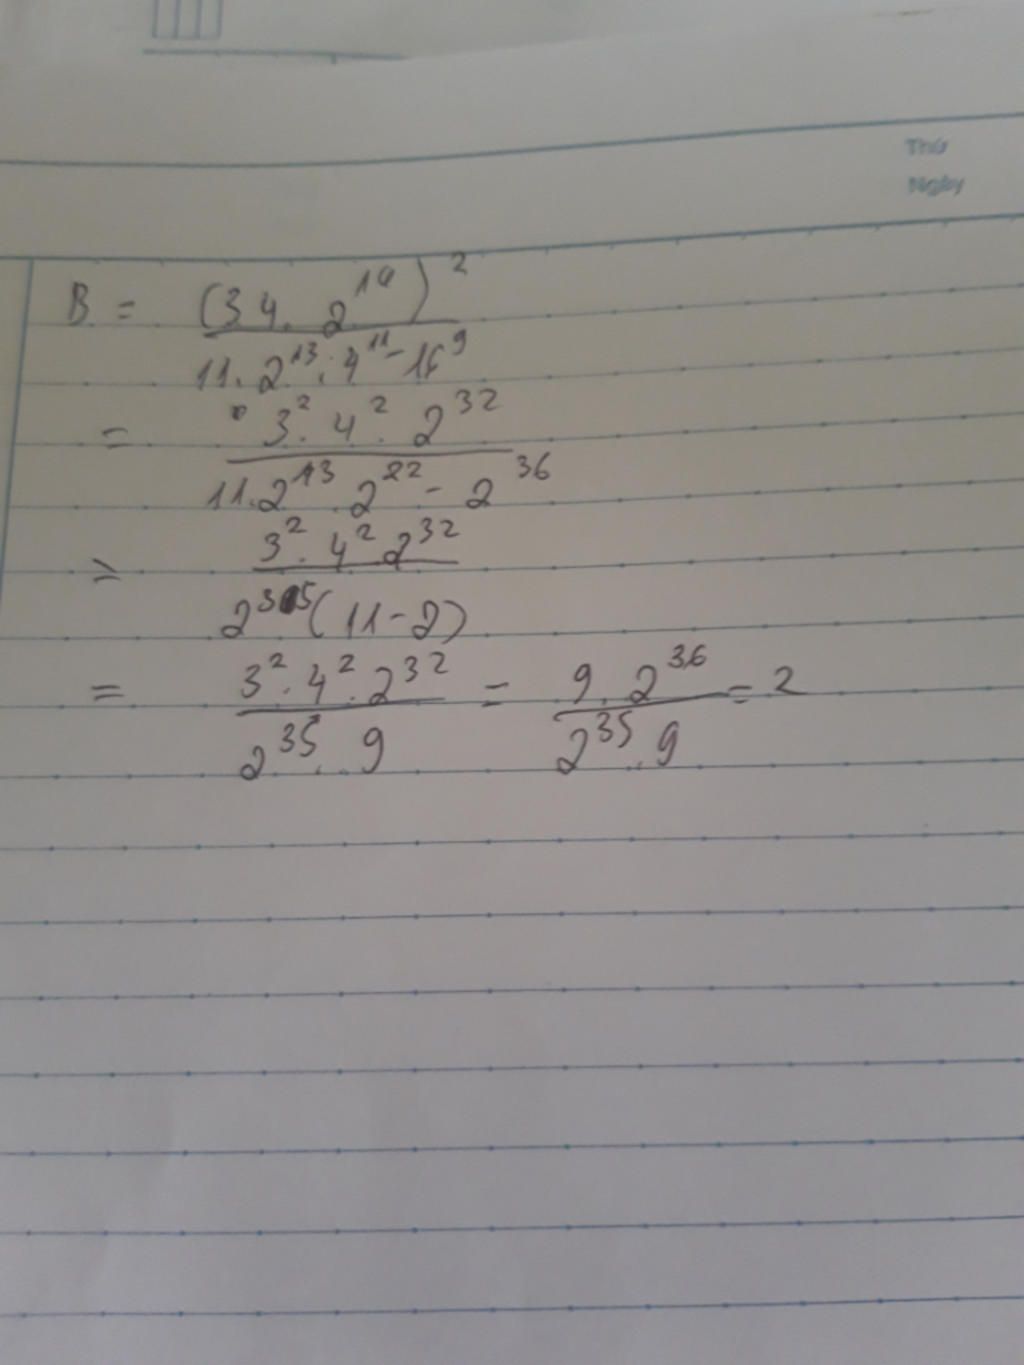 Thứ
Ngày
B = (34. 2^19)^2 / 11.2^13.4^11 - 16^9
= 3^2.4^2.2^32 / 11.2^13.2^22 - 2^36
= 3^2.4^2.2^32 / 2^35(11-2)
= 3^2.4^2.2^32 / 2^35.9 = 9.2^36 / 2^35.9 = 2